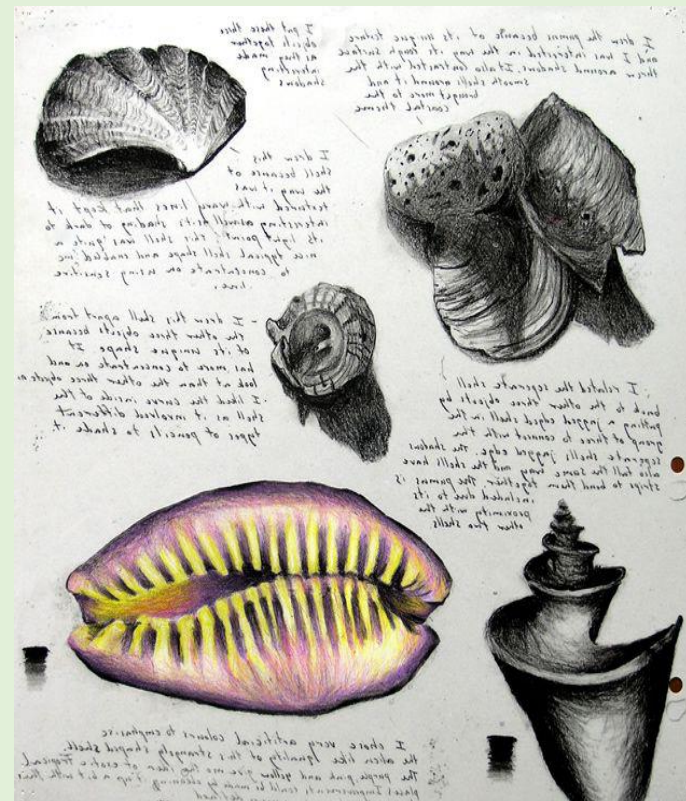 I drew the pumas because of its unique texture
and I was interested in the way its tough surface
threw around shadow. Italso contrasted with the
smooth shells around it and
brought more to the
coastal theme
I put these three
objects together
as they made
interesting
shadows
I drew this
shell because of
the way it was
textured with wavy lines that kept it
interesting aswell as its shading of dark to
its light point. this shell was quite a
nice typical shell shape and enabled me
to concentrate on using sensitive
line.
- I drew this shell apart from
the other three objects because
of its unique shape It
has more to concentrate on and
look at than the other three objects.
I liked the curve inside of the
shell as it involved different
types of pencils to shade it
I related the seperate shell
back to the other three objects by
putting a jagged edged shell in the
group of three to connect with the
seperate shells jagged edge. The shadows
also fall the same way and the shells have
strips to bond them together. The pumas is
included due to its
proximity with the
other two shells
I chose very artificial colours to emphasise
the alien like quality of this strangely shaped shell.
The purple pink and yellow give me the idea of exotic & Tropical
places. Improvements could be made by cleaning it up a bit with
defined